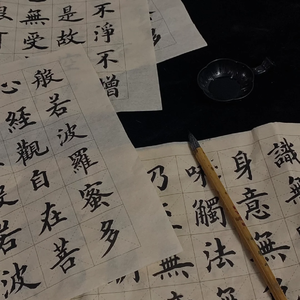 不淨不增
是故
無受
般若波羅蜜多
心經觀自在菩
若波
識無
身意無
味觸法
乃至無